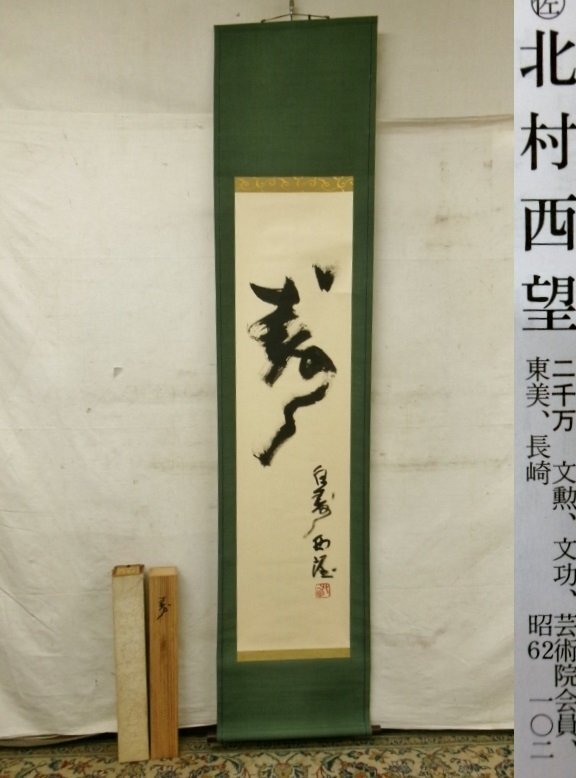 寿
白寿 西望
寿
佐
北村西望
二千万 文勲、文功、芸術院会員、
東美、長崎 昭62 一〇二